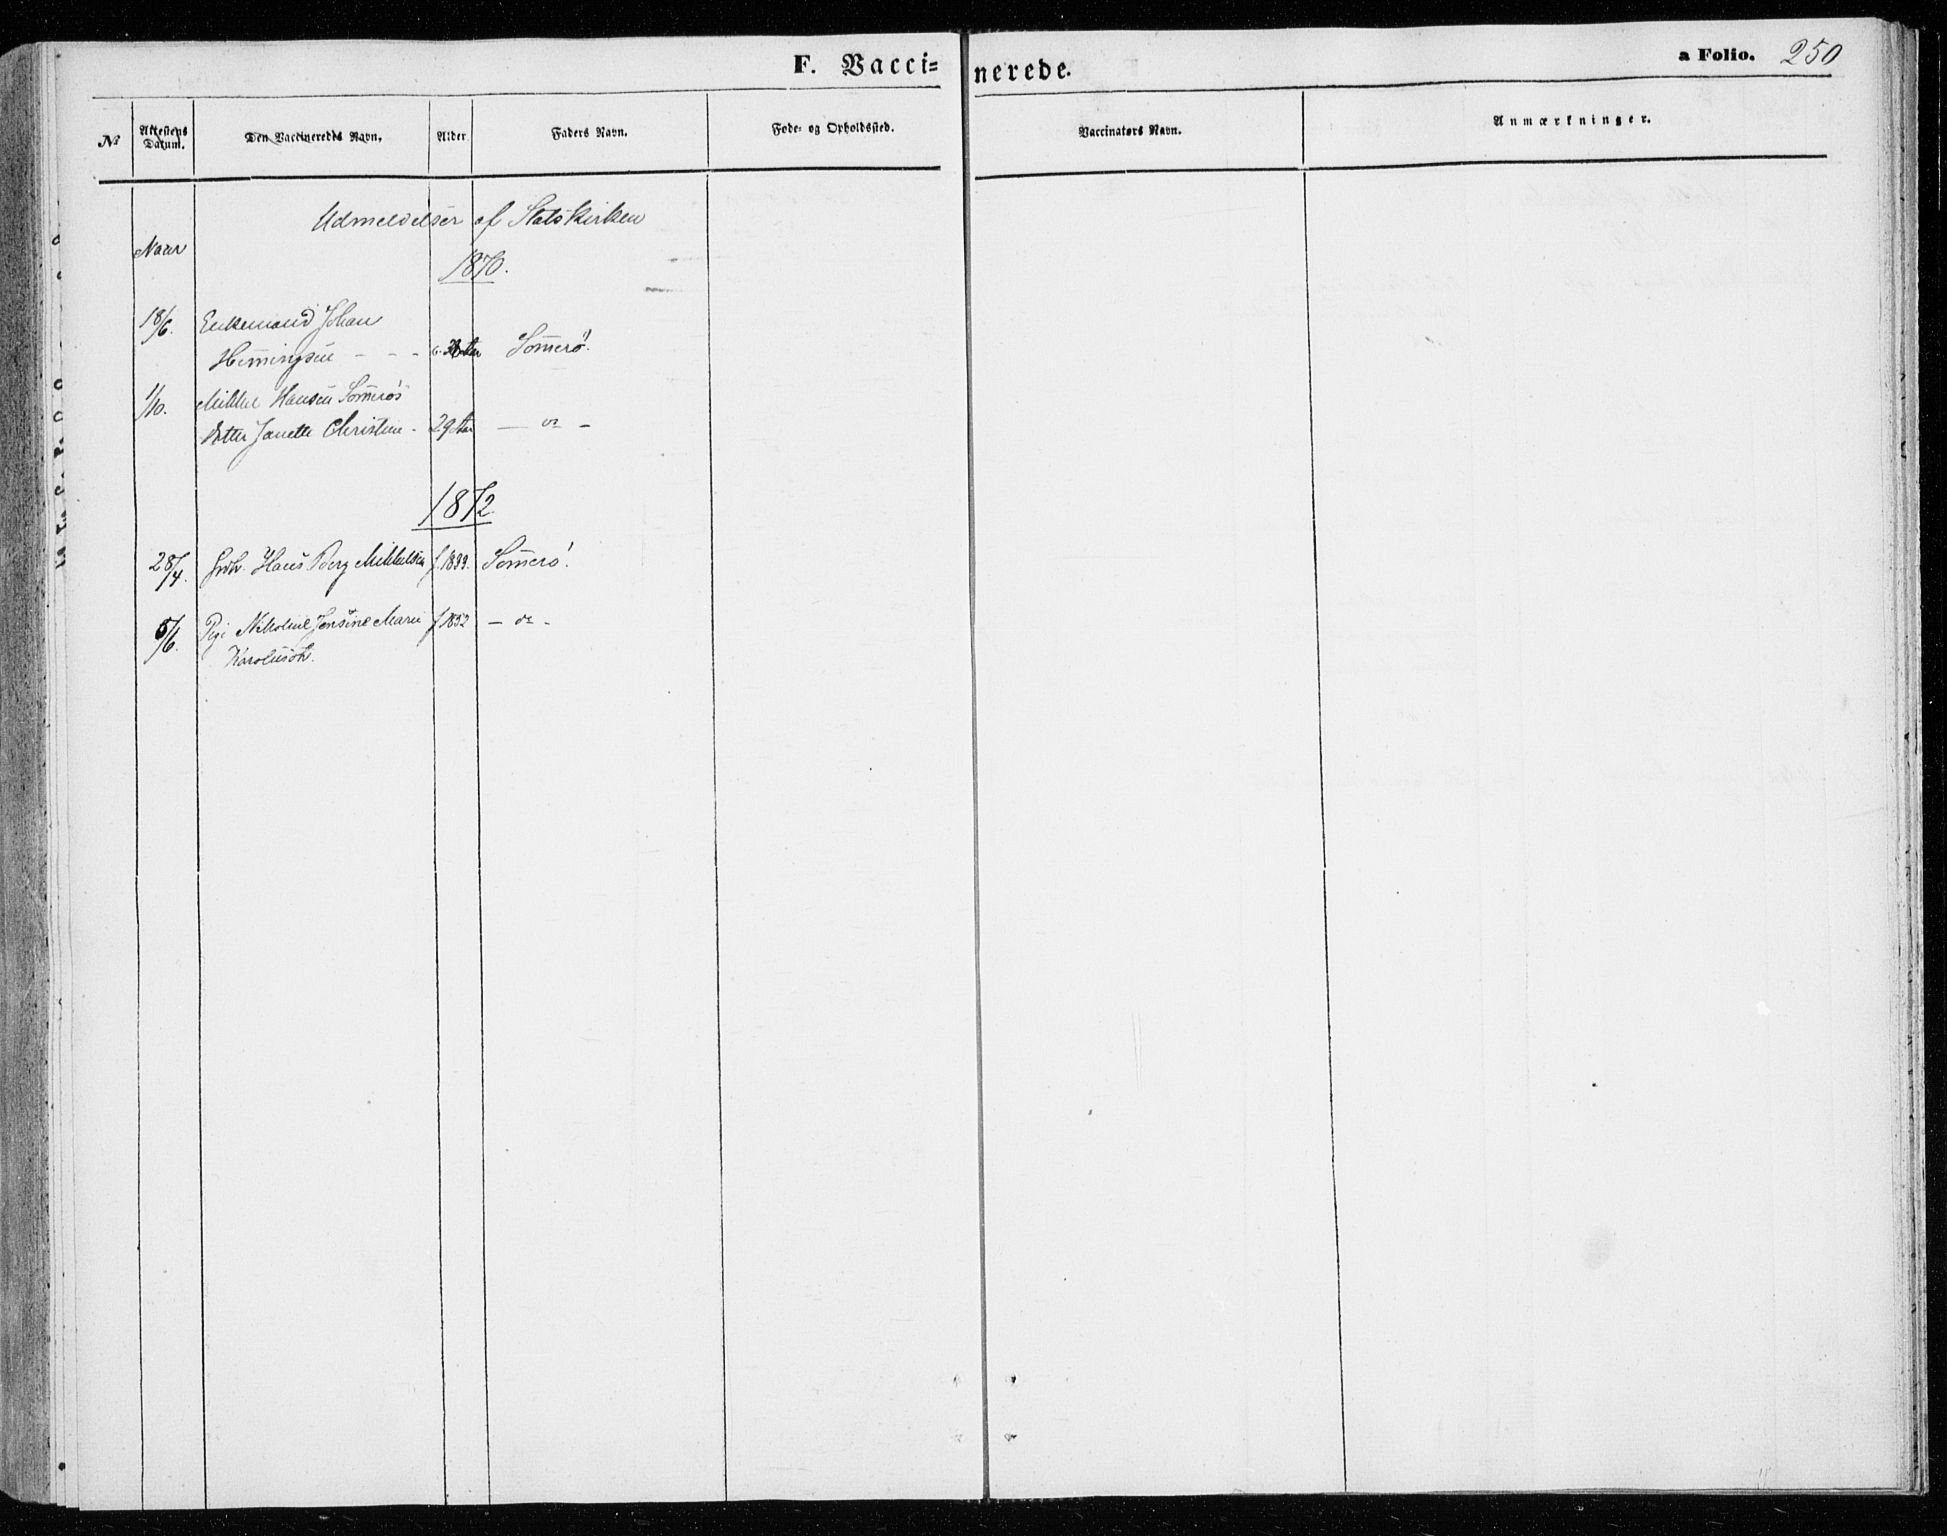 F. Vacci=
nerede.
a Folio. 250
No
Attestens Datum.
Den Vaccineredes Navn.
Alder
Faders Navn.
Føde= og Opholdssted.
Vaccinators Navn.
Anmærkninger.
Udmeldelser af Statskirken
Naar
1870.
18/6. Enkemand Johan
Hem̅ingsen - - - Som̅erö.
1/10. Mikkel Hansen Som̅erös
Datter Janette Christine - 29 Aar — do —
1872
28/4. Hans Berg Mikkelsen f. 1833. Som̅erö.
5/6. Pige Nikoline Jensine Marie f. 1852 — do -
Karolusdtr.